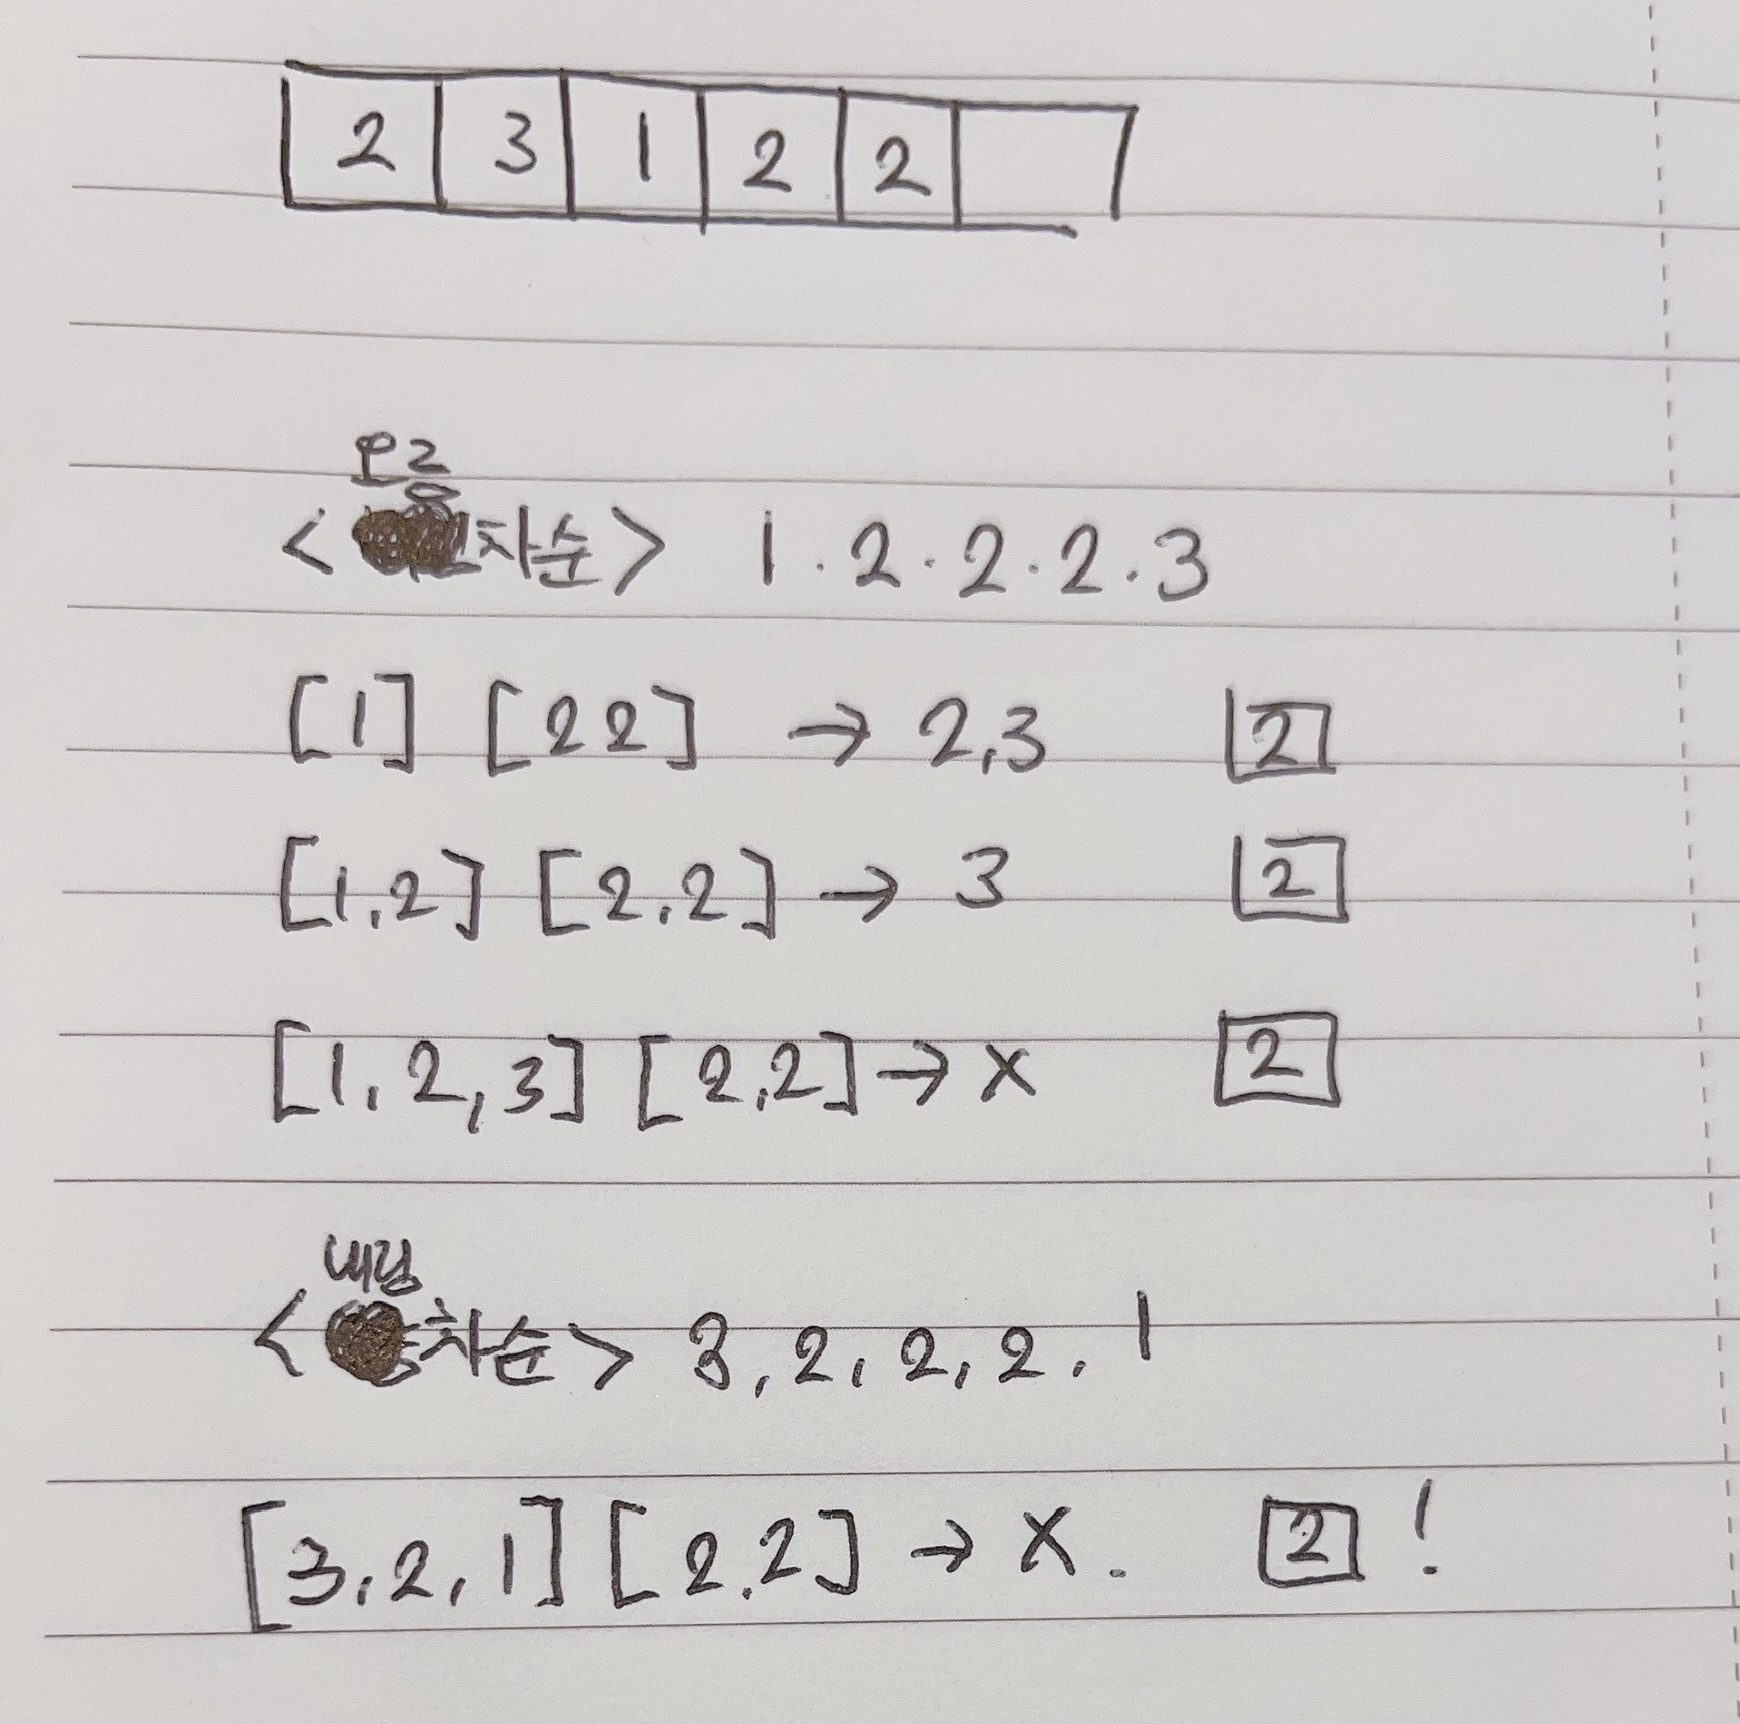 2 3 1 2 2
오름
<차순> 1 . 2 . 2 . 2 . 3
[1] [2 2] → 2,3 2
[1,2] [2,2] → 3 2
[1,2,3] [2,2] → X 2
내림
<차순> 3, 2, 2, 2, 1
[3,2,1] [2,2] → X. 2 !